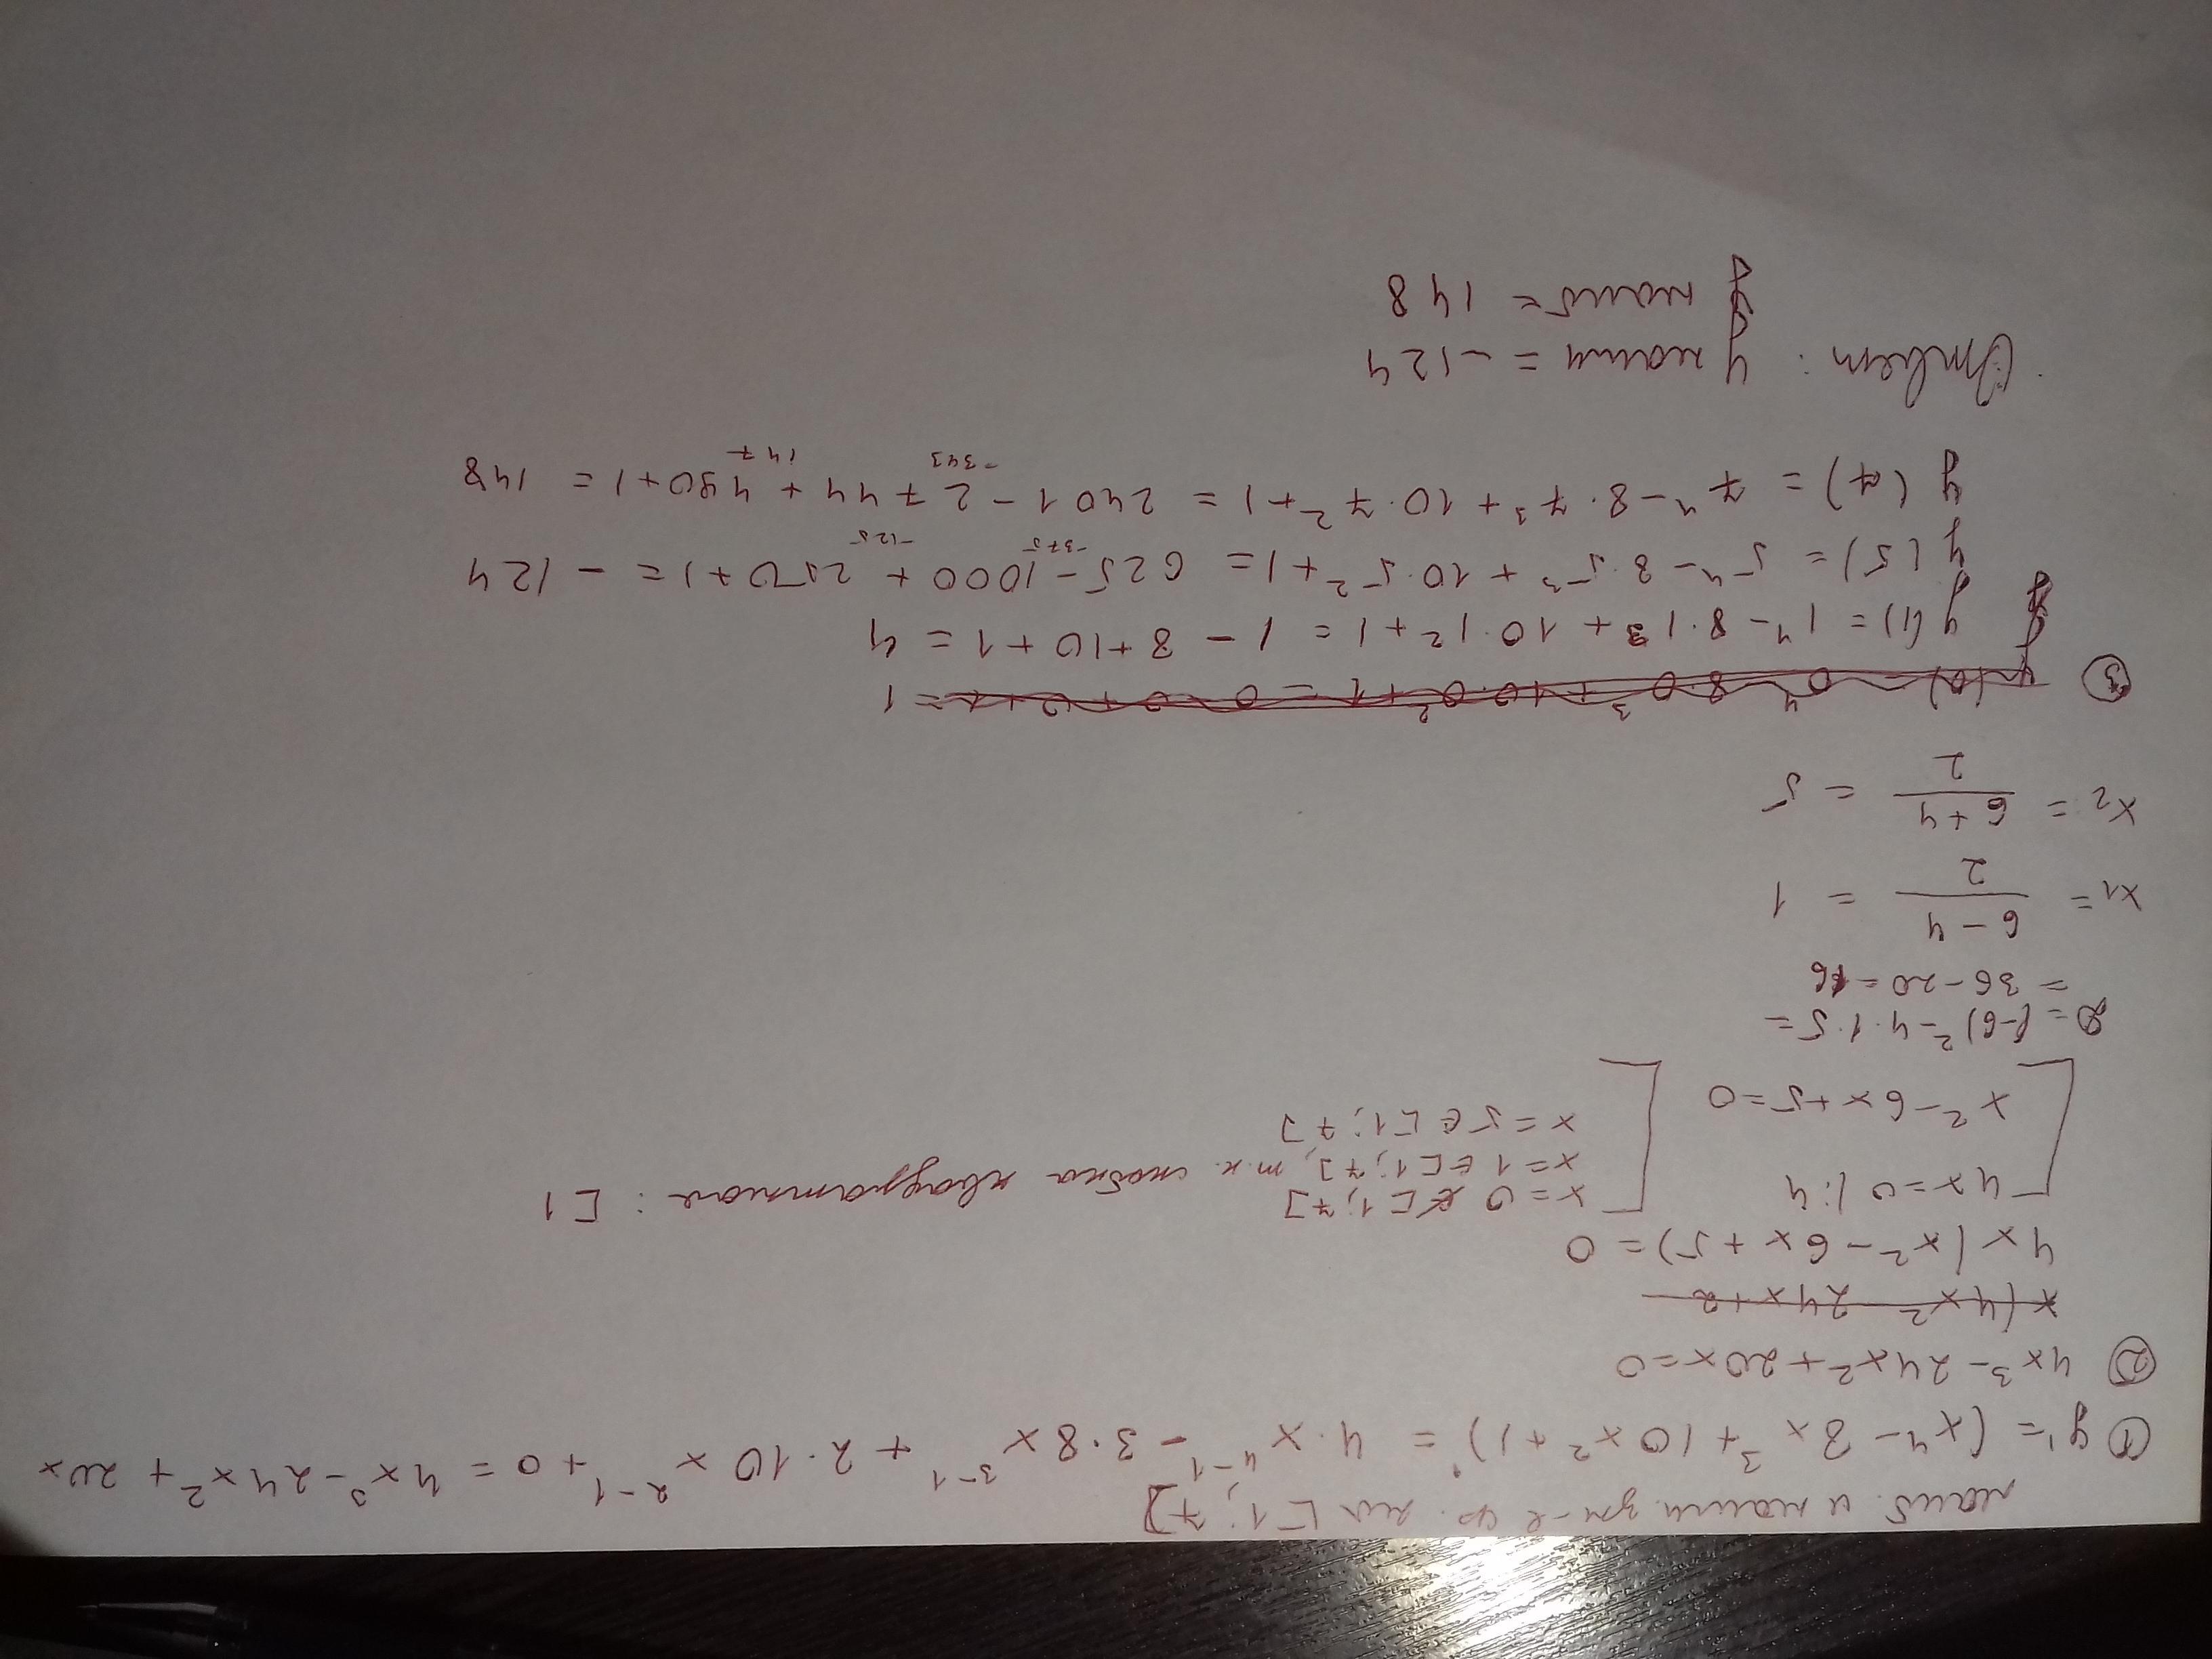 наиб. и наим зн-е ф. на [1; 7]
① y' = (x⁴ - 8x³ + 10x² + 1)' = 4·x⁴⁻¹ - 3·8x³⁻¹ + 2·10x²⁻¹ + 0 = 4x³ - 24x² + 20x
② 4x³ - 24x² + 20x = 0
x(4x² 24x+2
4x (x² - 6x + 5) = 0
4x = 0 |:4
x = 0 ∉ [1; 7]
x = 1 ∈ [1; 7], т.к. скобка квадратная : [1
x² - 6x + 5 = 0
x = 5 ∈ [1; 7]
D = (-6)² - 4·1·5 =
= 36 - 20 = 16
x1 = (6 - 4)/2 = 1
x2 = (6 + 4)/2 = 5
③ y(0) = 0⁴ - 8·0³ + 10·0² + 1 = 0 - 0 + 0 + 1 = 1
y(1) = 1⁴ - 8·1³ + 10·1² + 1 = 1 - 8 + 10 + 1 = 4
y(5) = 5⁴ - 8·5³ + 10·5² + 1 = 625 - 1000 + 250 + 1 = - 124
-375 -125
y(7) = 7⁴ - 8·7³ + 10·7² + 1 = 2401 - 2744 + 490 + 1 = 148
-343 147
Ответ: y наим = -124
y наиб = 148